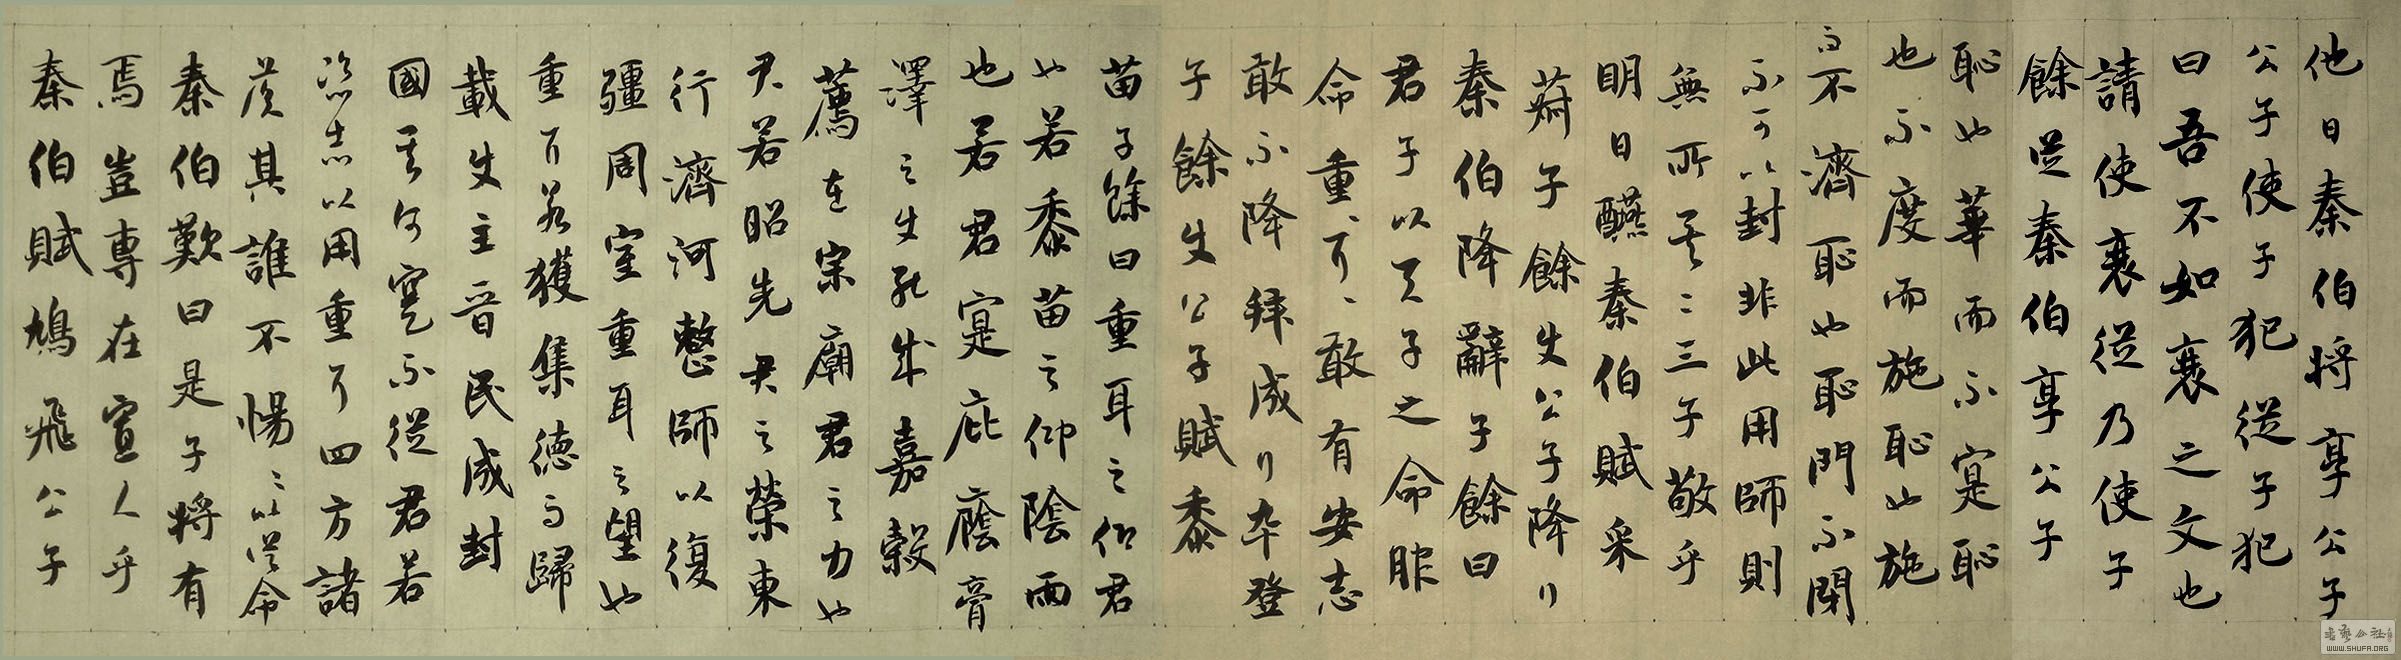 他日秦伯將享公子
公子使子犯從子犯
曰吾不如衰之文也
請使衰從乃使子
餘從秦伯享公子
恥也華而不寔恥
也不度而施恥也施
而不濟恥也恥門不閉
不可以封非此用師則
無所矣二三子敬乎
明日醼秦伯賦采
菽子餘使公子降拜
秦伯降辭子餘曰
君子以天子之命服
命重〻耳〻敢有安志
敢不降拜成拜卒登
子餘使公子賦黍
苗子餘曰重耳之仰君
也若黍苗之仰陰雨
也若君寔庇廕膏
澤之使能成嘉穀
薦在宗廟君之力也
君若昭先君之榮東
行濟河整師以復
疆周室重耳之望也
重耳若獲集德而歸
載使主晉民成封
國其何寔不從君若
恣志以用重耳四方諸
侯其誰不惕〻以從命
秦伯歎曰是子將有
焉豈專在寡人乎
秦伯賦鳩飛公子
書藝公社
WWW.SHUFA.ORG